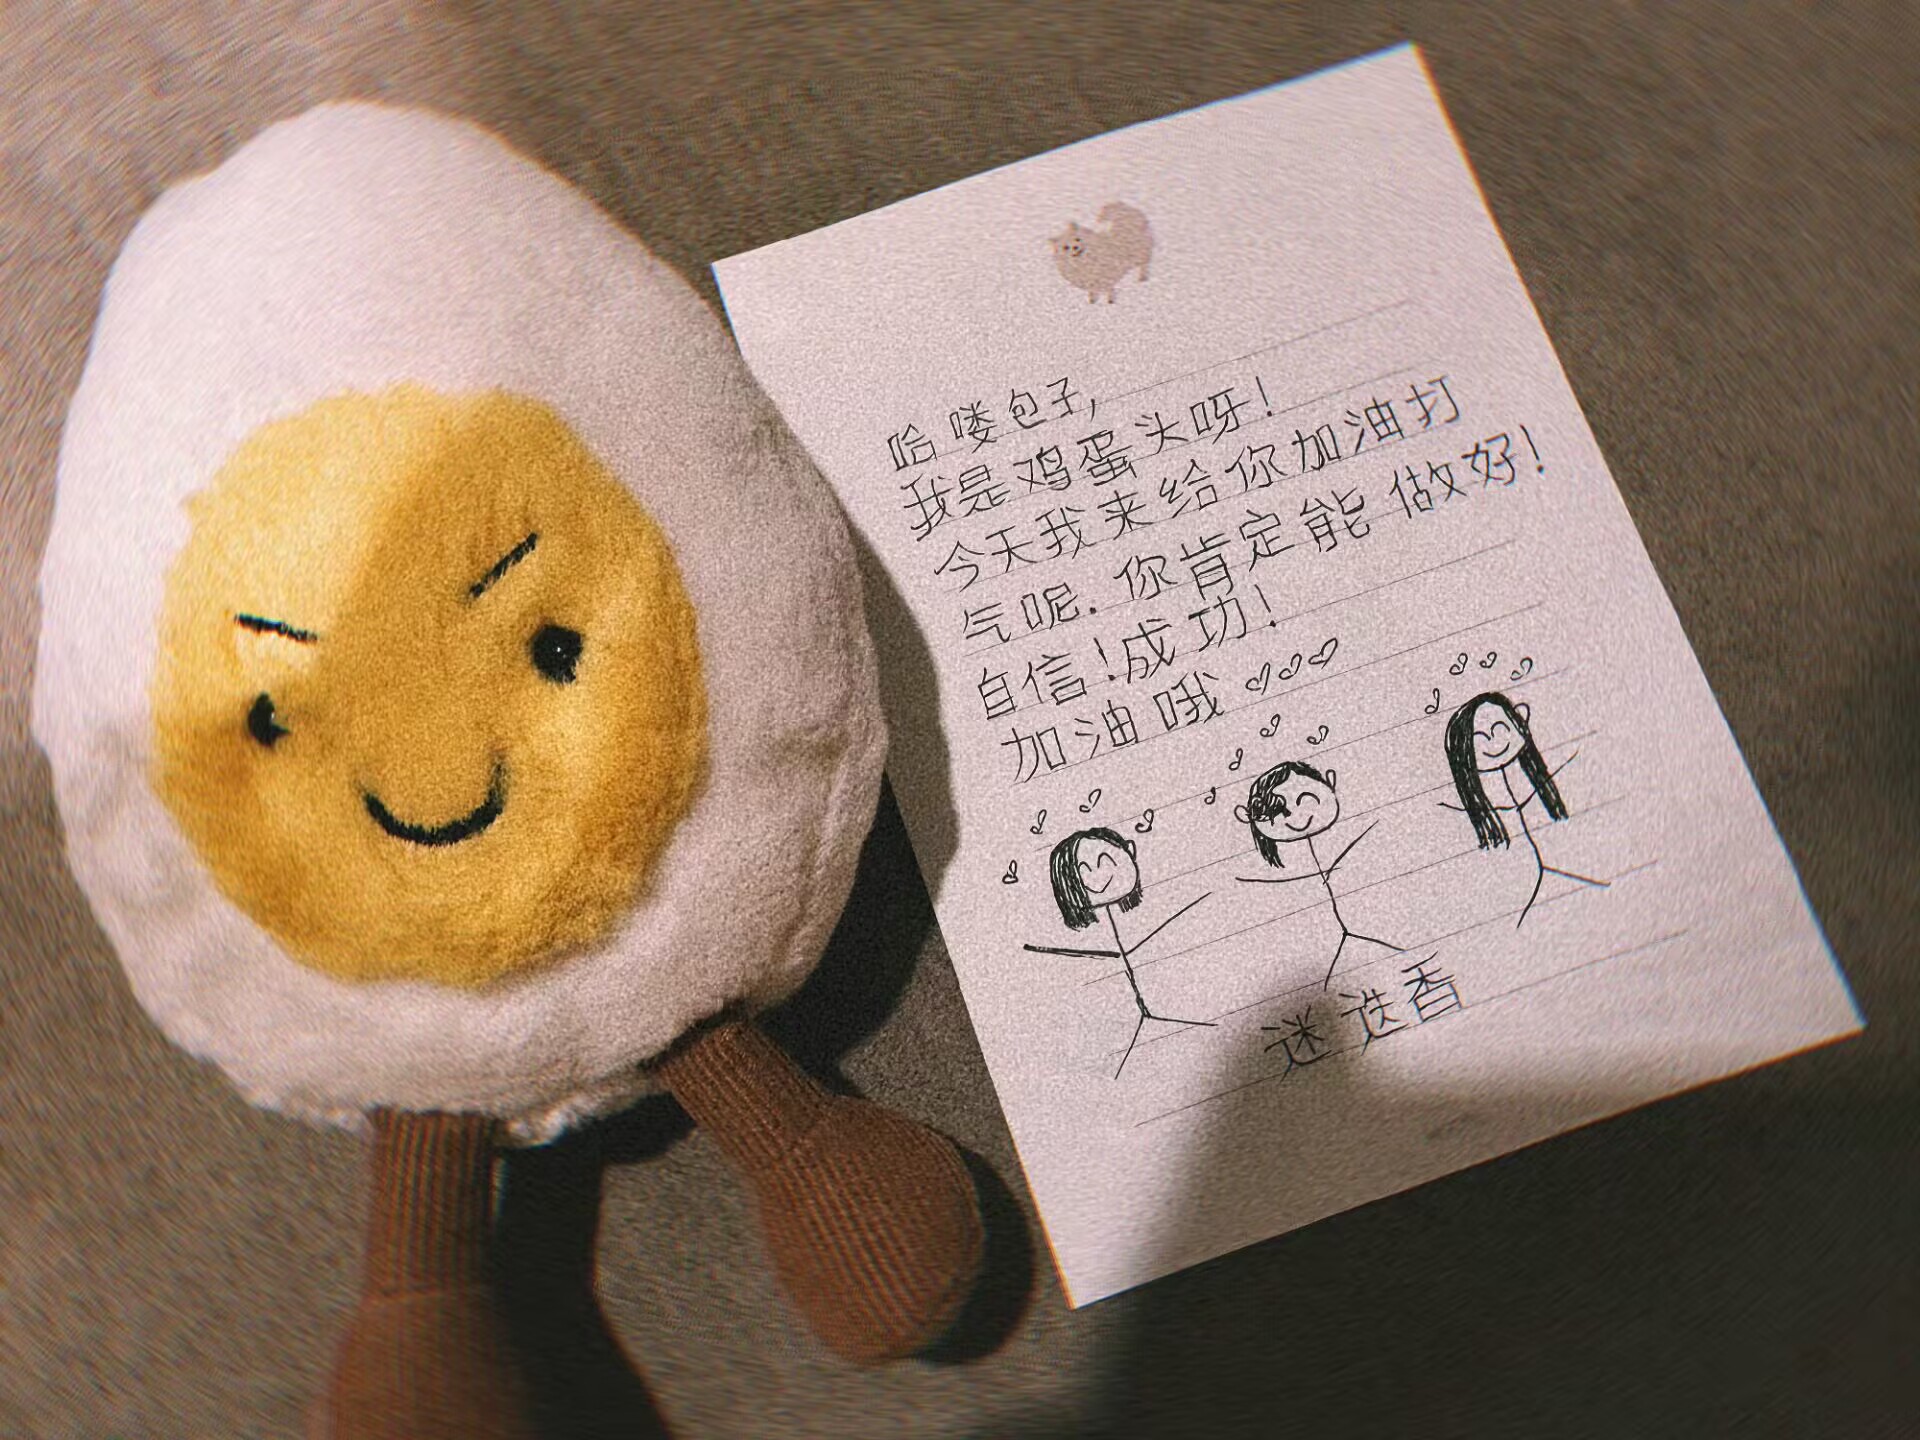 哈喽包子,
我是鸡蛋头呀!
今天我来给你加油打
气呢.你肯定能做好!
自信!成功!
加油哦♡♡♡
迷迭香